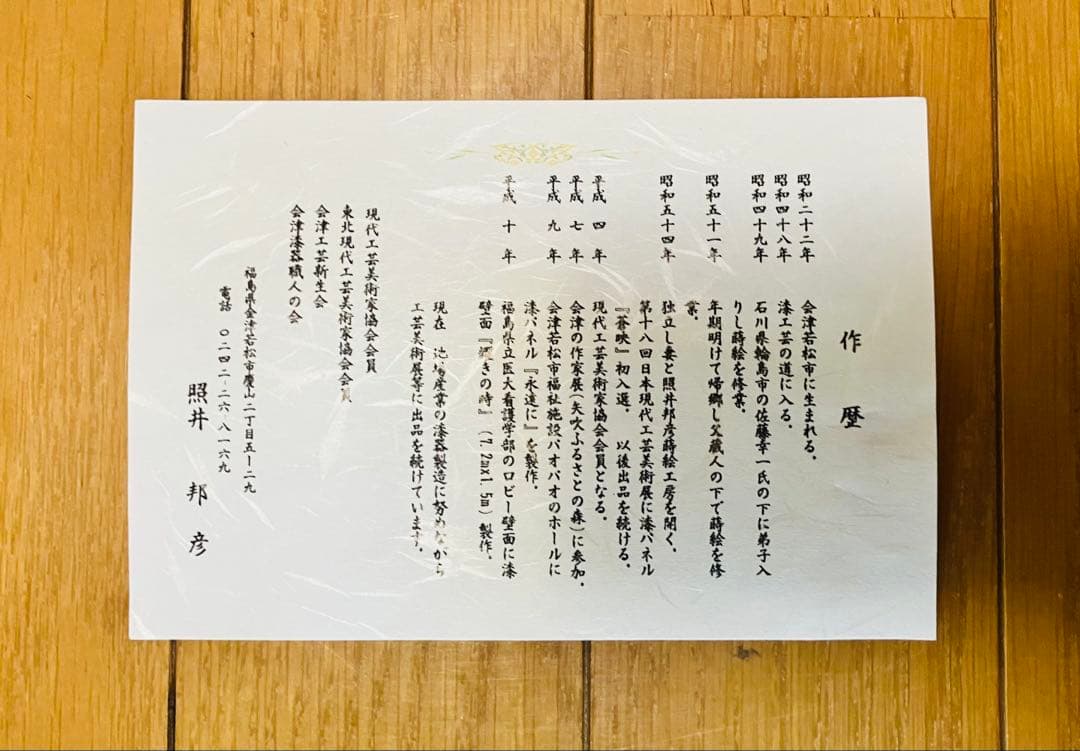 作歴
昭和二十二年 会津若松市に生まれる。
昭和四十八年 漆工芸の道に入る。
昭和四十九年 石川県輪島市の佐藤幸一氏の下に弟子入
りし蒔絵を修業。
昭和五十一年 年期明けて帰郷し父職人の下で蒔絵を修
業。
昭和五十四年 独立し妻と照井邦彦蒔絵工房を開く。
第十八回日本現代工芸美術展に漆パネル
『蒼映』初入選。 以後出品を続ける。
平成 四 年 現代工芸美術家協会会員となる。
平成 七 年 会津の作家展(矢吹ふるさとの森)に参加。
平成 九 年 会津若松市福祉施設パオパオのホールに
漆パネル『永遠に』を製作。
平成 十 年 福島県立医大看護学部のロビー壁面に漆
壁面『輝きの時』(7.2m×1.5m)製作。
現在 地場産業の漆器製造に努めながら
工芸美術展等に出品を続けています。
現代工芸美術家協会会員
東北現代工芸美術家協会会員
会津工芸新生会
会津漆器職人の会
福島県会津若松市慶山二丁目五ー二九
電話 〇二四二ー二六ー八一六九
照井 邦彦